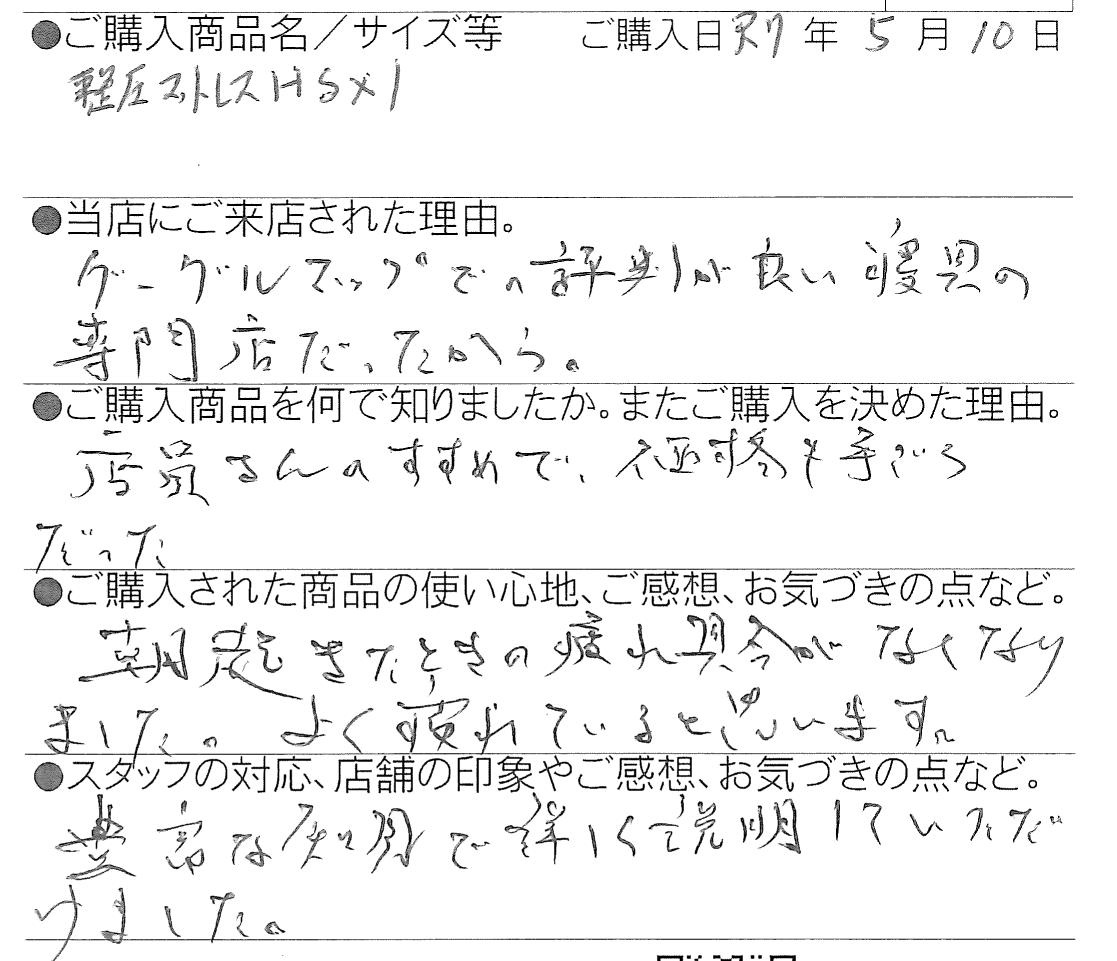 ●ご購入商品名／サイズ等　ご購入日 R7 年 5 月 10 日
軽圧ストレスHS×1
●当店にご来店された理由。
グーグルマップでの評判が良い寝具の
専門店だったから。
●ご購入商品を何で知りましたか。またご購入を決めた理由。
店員さんのすすめで、価格も手ごろ
だった
●ご購入された商品の使い心地、ご感想、お気づきの点など。
朝起きたときの疲れ具合がなくなり
ました。よく寝れていると思います。
●スタッフの対応、店舗の印象やご感想、お気づきの点など。
豊富な知識で詳しく説明していただ
けました。